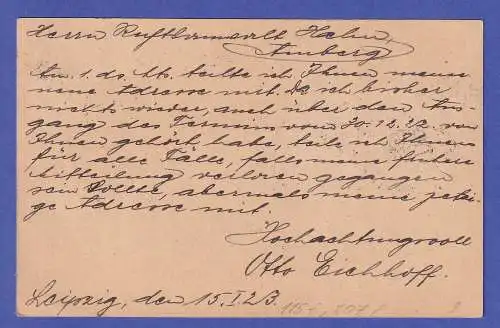 Herrn Rechtsanwalt Hahn
Amberg
Am 1. ds. Mts. teilte ich Ihnen meine
neue Adresse mit. Da ich bisher
nichts wieder, auch über den Aus-
gang des Termins vom 30.12.22 von
Ihnen gehört habe, teile ich Ihnen
für alle Fälle, falls meine frühere
Mitteilung verloren gegangen
sein sollte, abermals meine jetzi-
ge Adresse mit.
Hochachtungsvoll
Otto Eichhoff.
Leipzig, den 15.I.23.